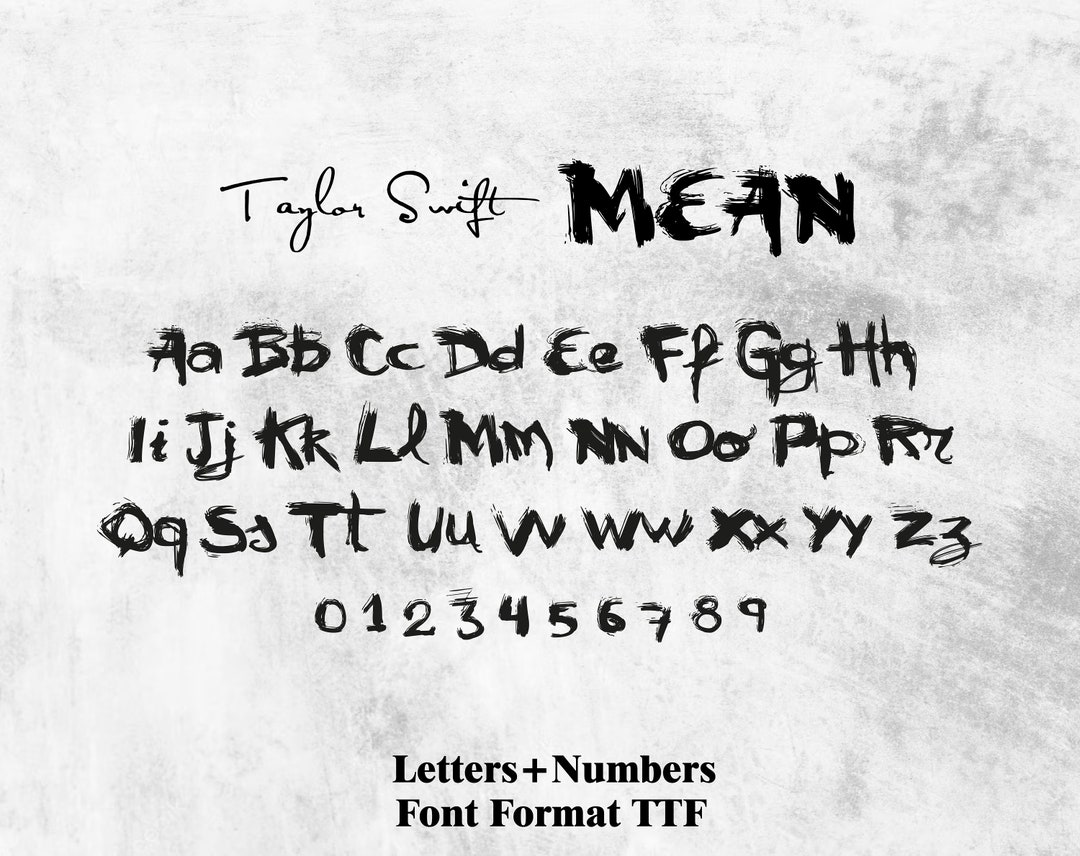 Taylor Swift MEAN
Aa Bb Cc Dd Ee Ff Gg Hh
Ii Jj Kk Ll Mm Nn Oo Pp Rr
Qq Ss Tt Uu Vv Ww Xx Yy Zz
0 1 2 3 4 5 6 7 8 9
Letters+Numbers
Font Format TTF